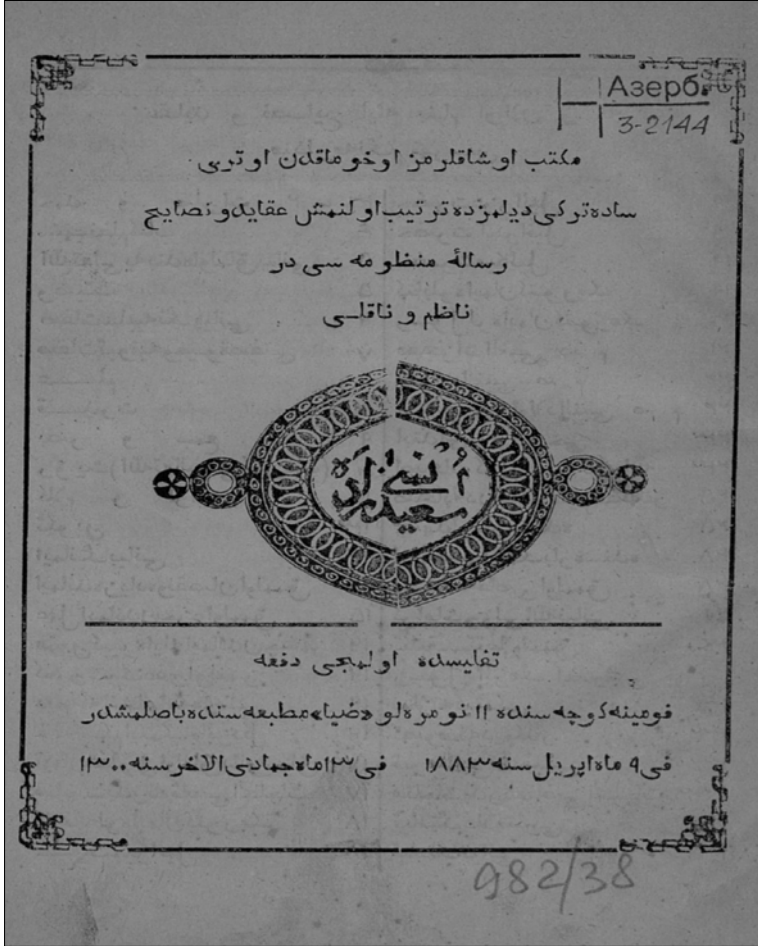 Азерб.
3-2144
مکتب اوشاقلرمز اوخوماقدن اوتری
ساده ترکی دیلمزده ترتیب اولنمش عقاید و نصایح
رسالهٔ منظومه سی در
ناظم و ناقلی
سعید
تفلیسده اولمجی دفعه
کوچه سنده ۱۱ نومره لو «ضیا» مطبعه سنده باصلمشدر
فی ۹ ماه اپریل سنه ۱۸۸۳ فی ۱۳ ماه جمادی الاخر سنه ۱۳۰۰
982/38